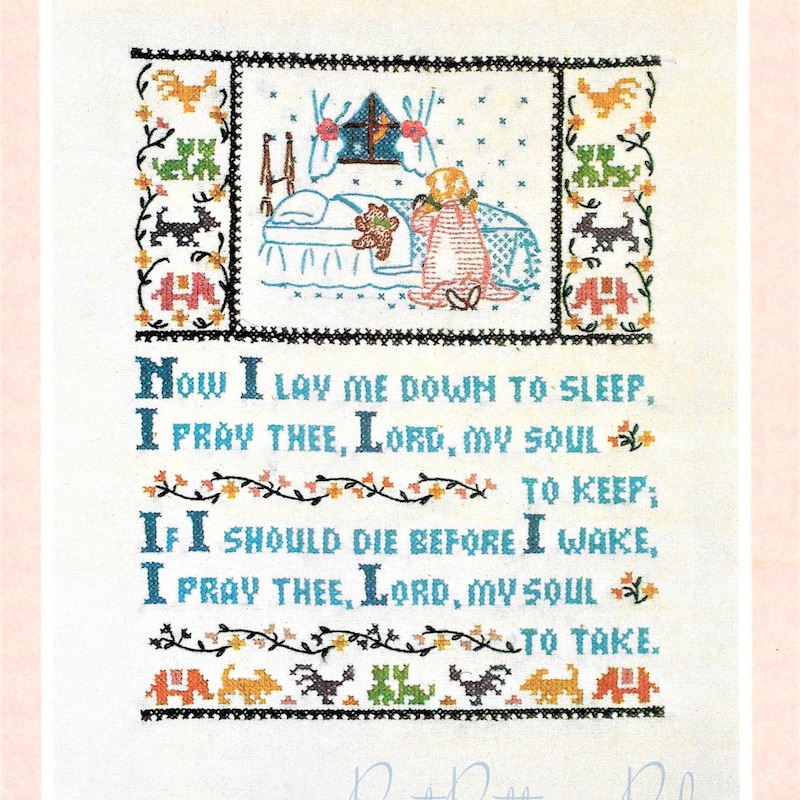 Now I lay me down to sleep,
I pray thee, Lord, my soul
to keep;
If I should die before I wake,
I pray thee, Lord, my soul
to take.